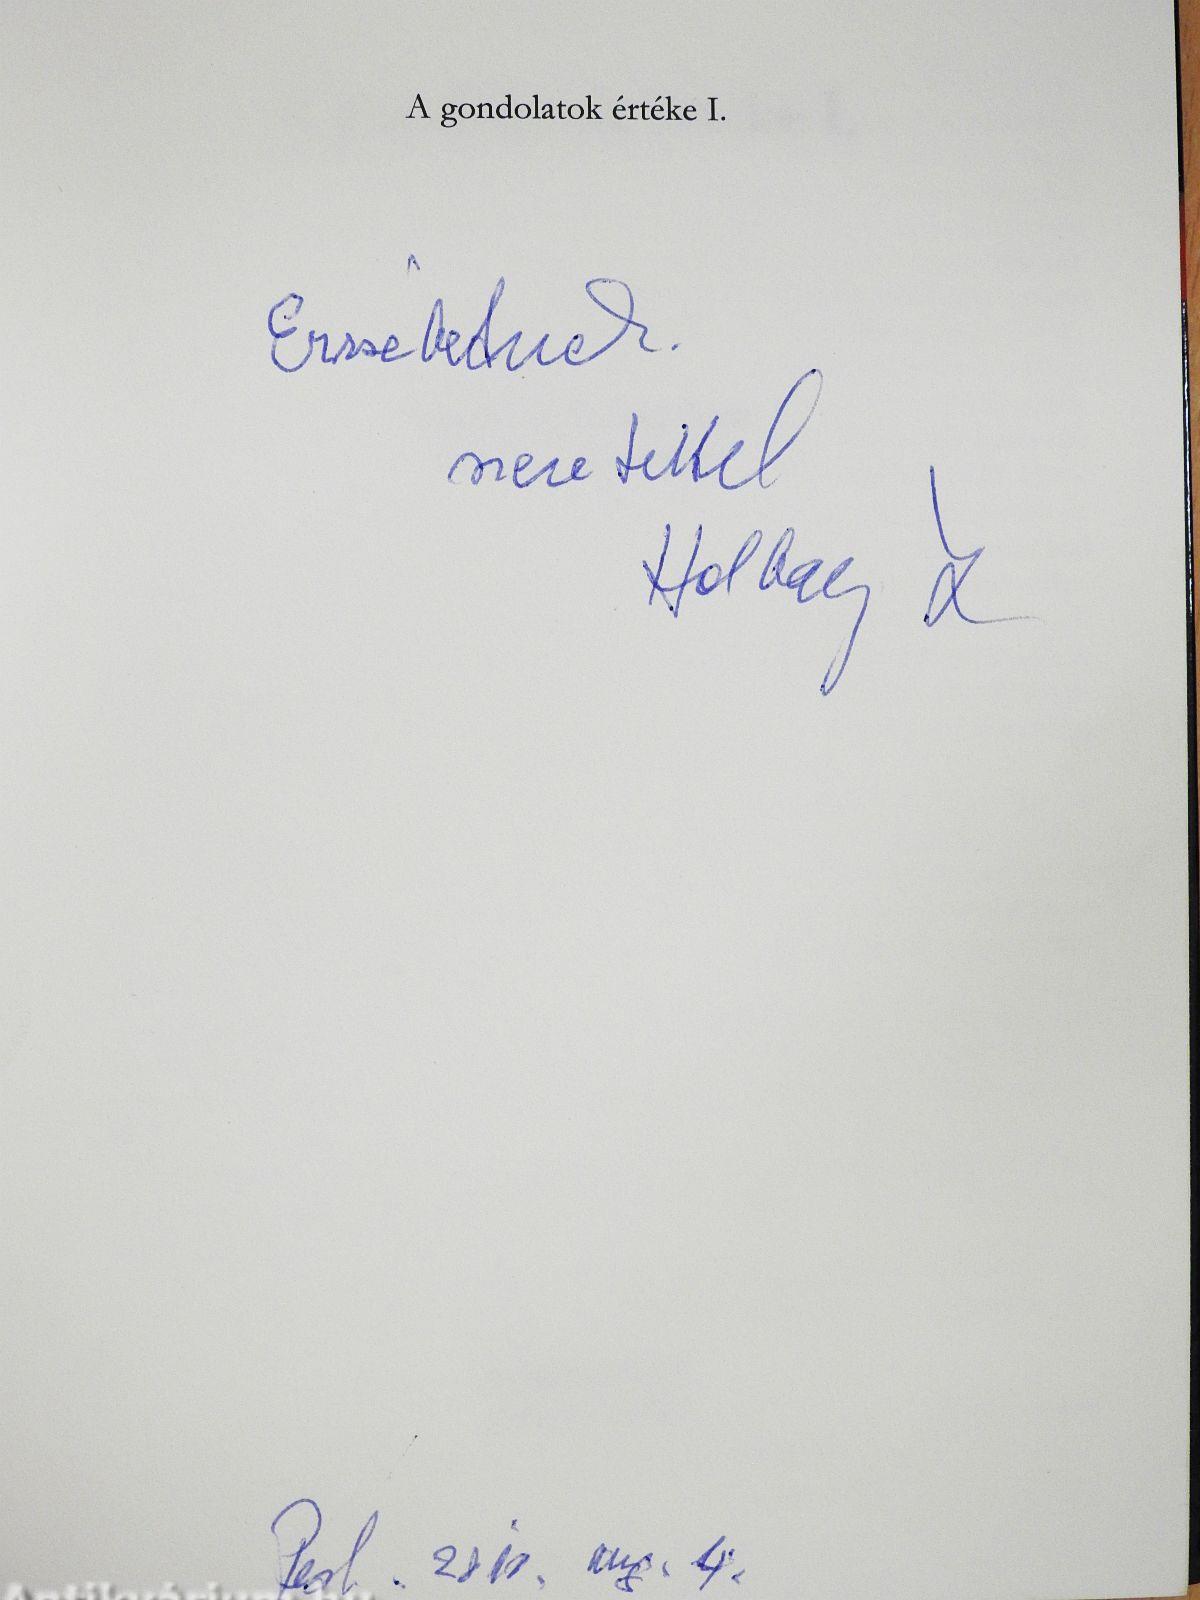 A gondolatok értéke I.
Erzsébetnek.
szeretettel
Holbay L
Pest. aug. 4.
Antikvárium.hu